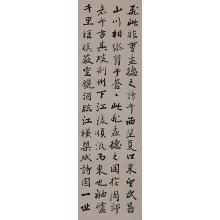 飛此非曹孟德之詩乎西望夏口東望武昌
山川相繆鬱乎蒼〻此非孟德之困於周郎
者乎方其破荊州下江陵順流而東也舳艫
千里旌旗蔽空釃酒臨江橫槊賦詩固一世